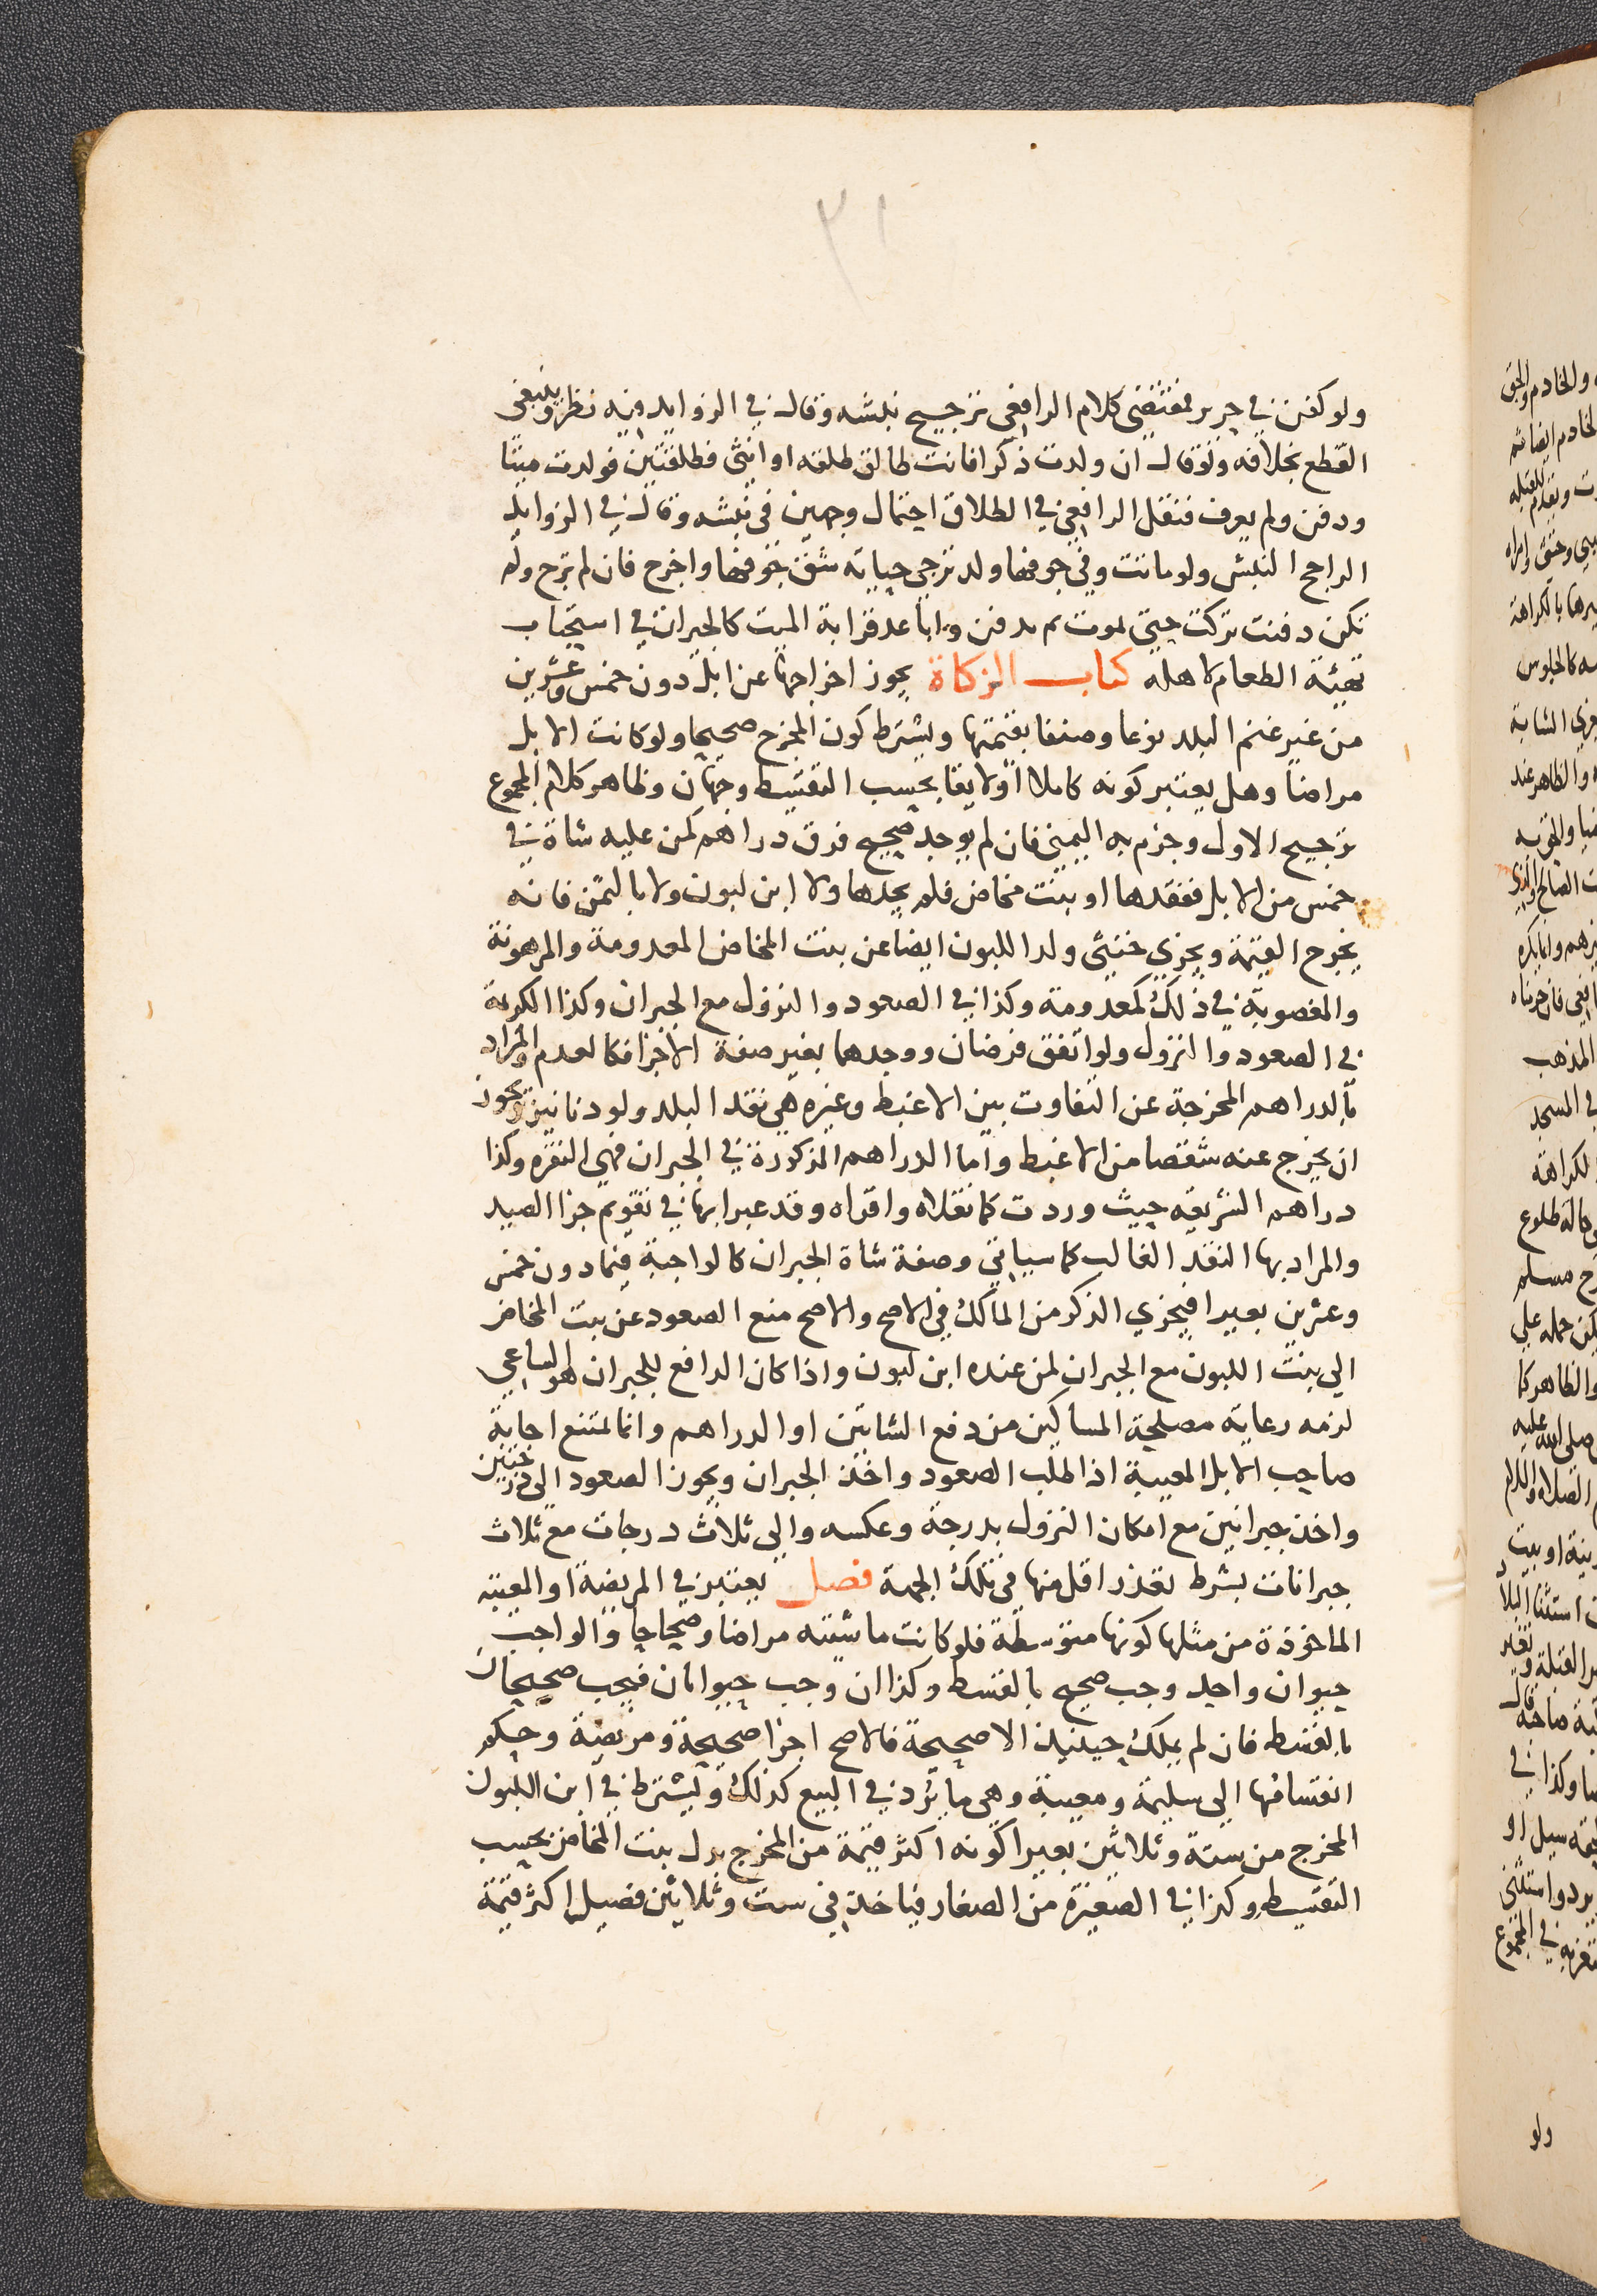 ٣١
ولو كفن في حرير فمقتضى كلام الرافعي ترجيح نبشه وقال في الزوايد وفيه نظر وينبغي
القطع بخلافه ولو قال ان ولدت ذكرا فانت طالق طلقه او انثى فطلقتين فولدت ميتا
ودفن ولم يعرف فنقل الرافعي في الطلاق احتمال وجهين في نبشه وقال في الزوايد
الراجح النبش ولو ماتت وفي جوفها ولد ترجي حياته شق جوفها واخرج فان لم ترج وله
تكن دفنت تركت حتى يموت ثم يدفن واباعد قرابة الميت كالجيران في استحباب
تهيئة الطعام لاهله كتاب الزكاة يجوز اخراجها عن ابل دون خمس وعشرين
من غير غنم البلد نوعا وصنفا بقيمتها ويشترط كون المخرج صحيحا ولو كانت الابل
مراضا وهل يعتبر كونه كاملا او لايقا بحسب التقسيط وجهان وظاهر كلام المجموع
ترجيح الاول وجزم به اليمني فان لم يوجد صحيح فرق دراهم كمن عليه شاة في
خمس من الابل ففقدها او بنت مخاض فلم يجدها ولا ابن لبون ولا بالثمن فانه
يخرج القيمة ويجزي خنثى ولد اللبون ايضا عن بنت المخاض المعدومة والمرهونة
والمغصوبة في ذلك كمعدومة وكذا في الصعود والنزول مع الجبران وكذا الكريمة
في الصعود والنزول ولو اتفق فرضان ووجدهما بغير صفة الاجزا فكالعدم والمراد
بالدراهم المخرجة عن التفاوت بين الاغبط وغيره هي نقد البلد ولو دنانير ويجوز
ان يخرج عنه شقصا من الاغبط واما الدراهم المذكورة في الجبران فهي النقره وكذا
دراهم الشريعه حيث وردت كما نقلاه واقراه وقد عبرا بها في تقويم جزا الصيد
والمراد بها النقد الغالب كما سياتي وصفة شاة الجبران كالواجبة فيما دون خمس
وعشرين بعيرا فيجزي الذكر من المالك في الاصح والاصح منع الصعود عن بنت المخاض
الي بنت اللبون مع الجبران لمن عنده ابن لبون واذا كان الدافع للجبران هو الساعي
لزمه رعاية مصلحة المساكين من دفع الشاتين او الدراهم وانما تمتنع اجابة
صاحب الابل المعيبة اذا طلب الصعود واخذ الجبران ويجوز الصعود الى درجتين
واخذ جبرانين مع امكان النزول بدرجة وعكسه والي ثلاث درجات مع ثلاث
جبرانات بشرط تعذر اقل منها في تلك الجهة فصل يعتبر في المريضة او المعيبة
الماخوذة من مثلها كونها متوسطة فلو كانت ماشيته مراضا وصحاحا والواجب
حيوان واحد وجب صحيح بالقسط وكذا ان وجب حيوانان فيجب صحيحان
بالقسط فان لم يملك حينيذ الا صحيحة فالاصح اجزا صحيحة ومريضة وحكم
انقسامها الي سليمة ومعيبة وهي ما يرد في البيع كذلك ويشترط في ابن اللبون
المخرج من ستة وثلاثين بعيرا كونه اكثر قيمة من المخرج بدل بنت المخاض بحسب
التقسيط وكذا في الصغيرة من الصغار فياخذ في ست وثلاثين فصيلا اكثر قيمة
ولو